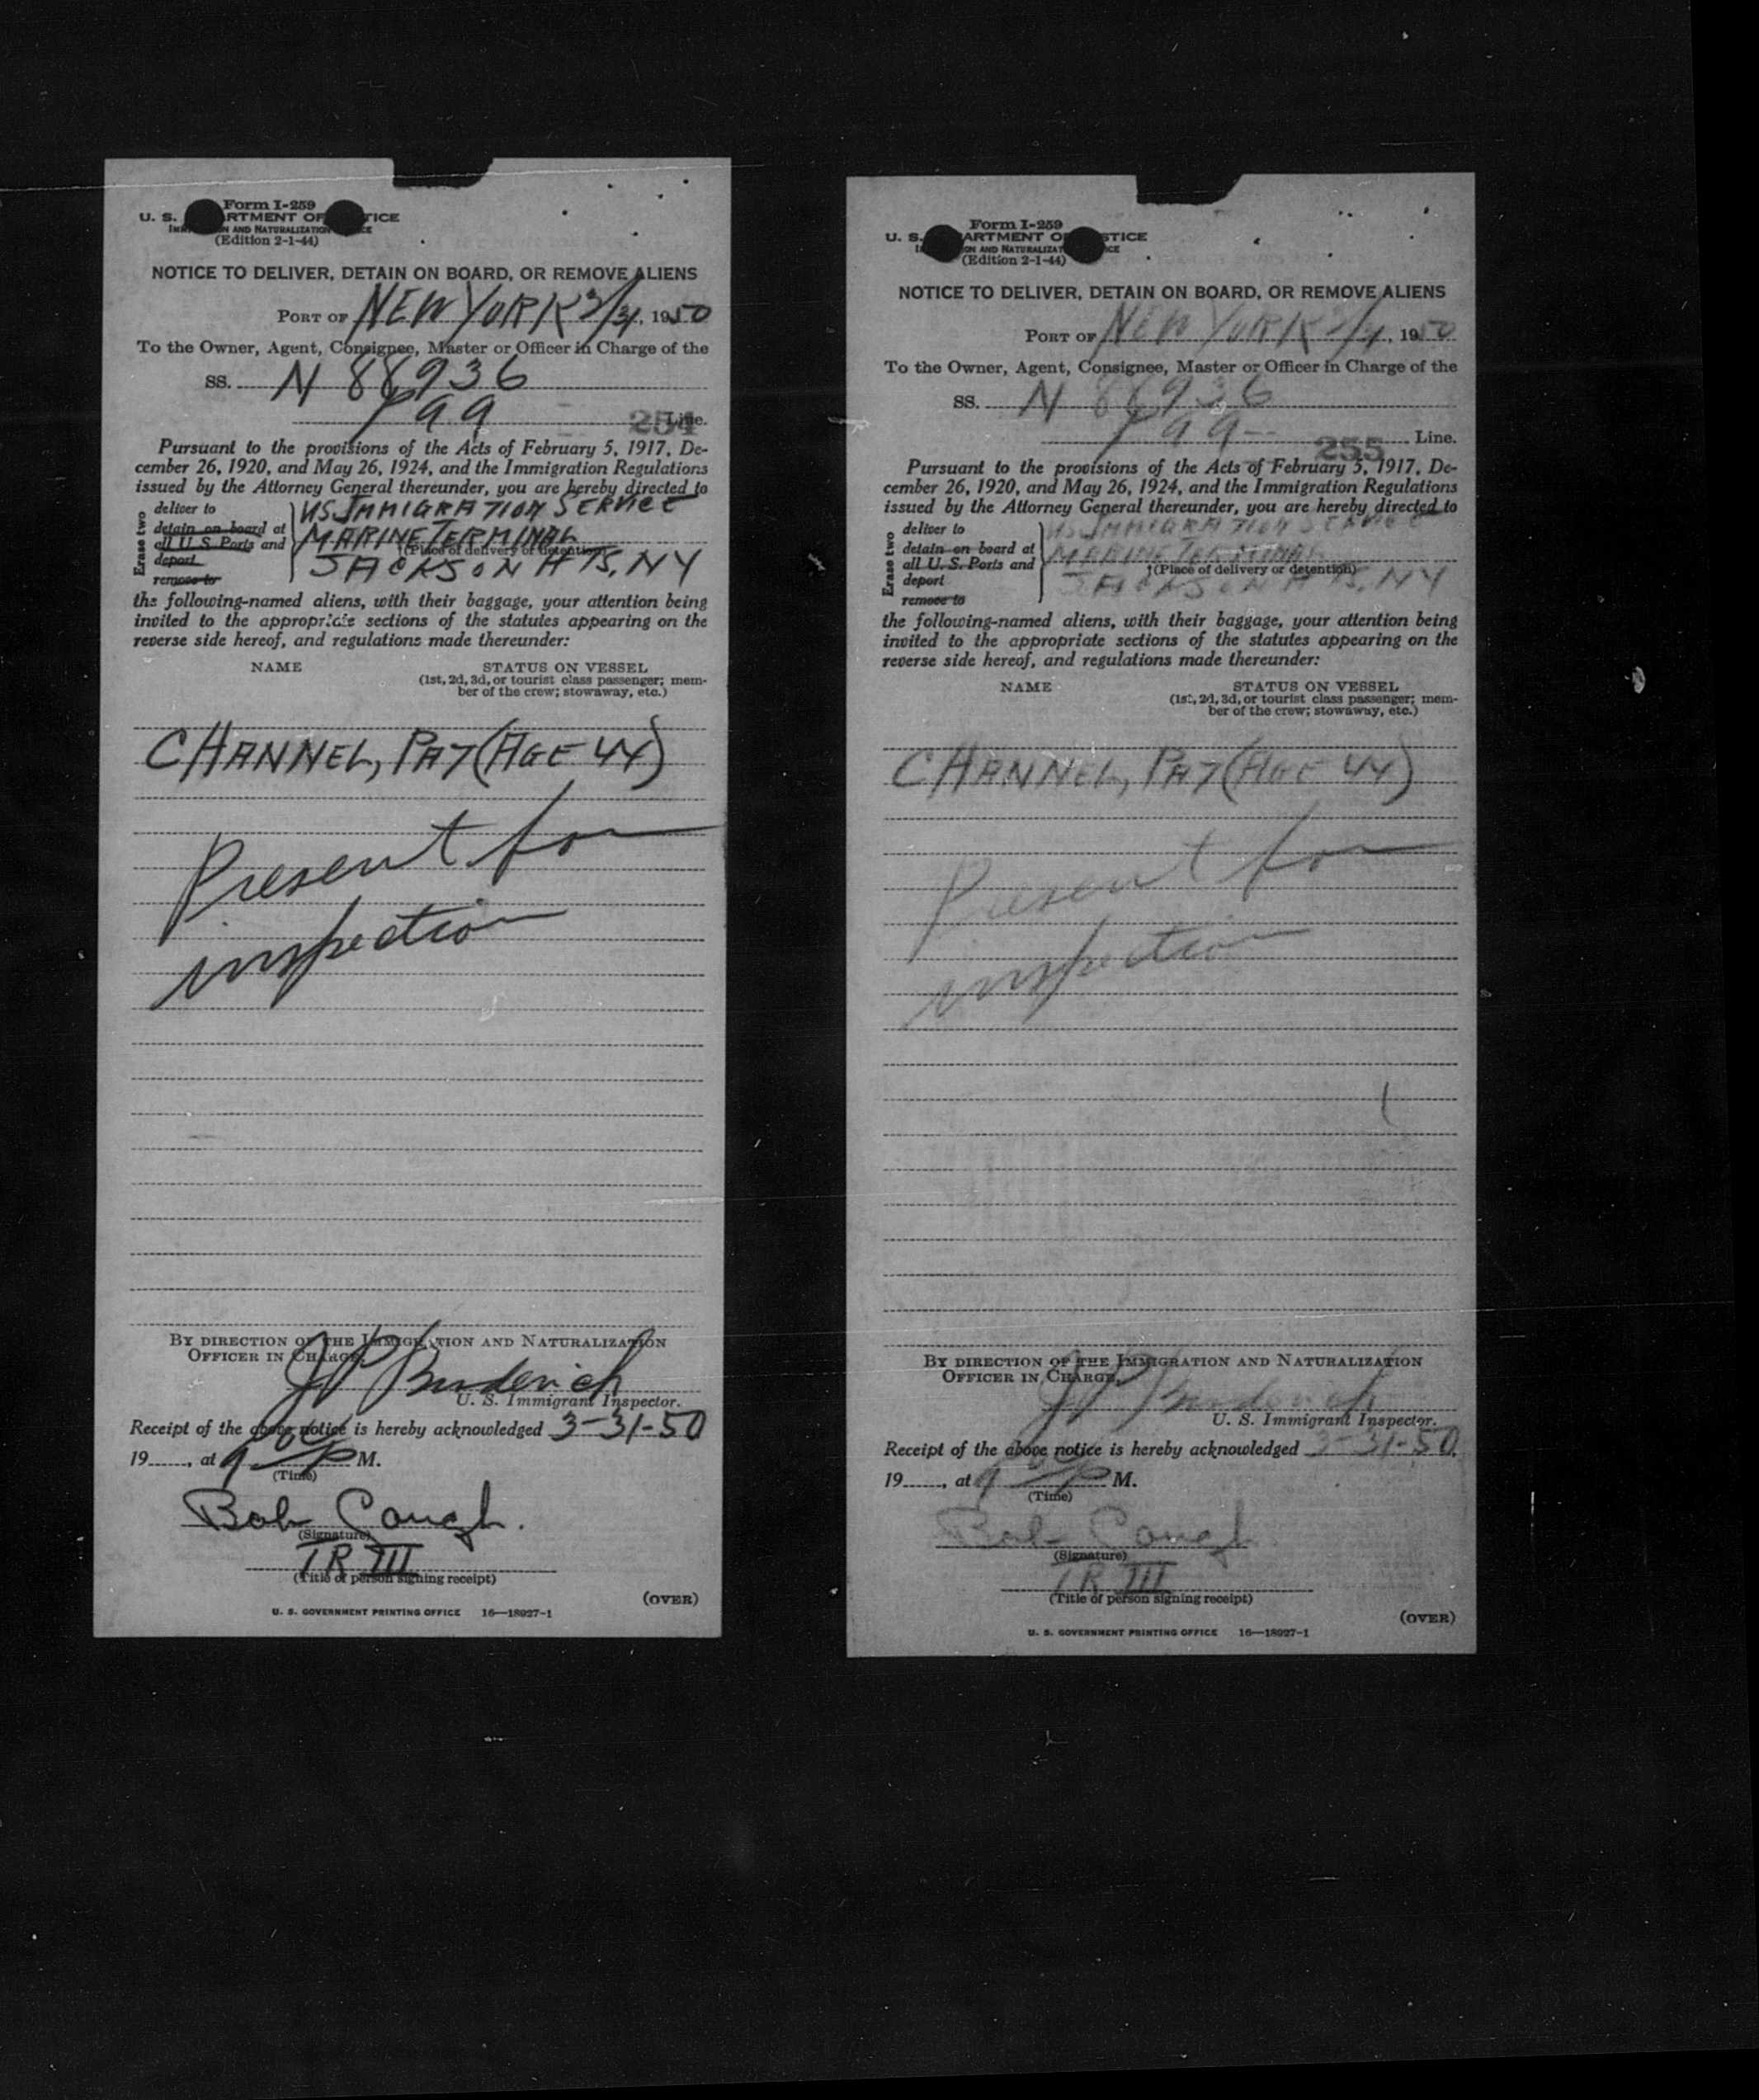 Form I-259
U. S. ARTMENT OF TICE
AND NATURALIZATION
(Edition 2-1-44)
NOTICE TO DELIVER, DETAIN ON BOARD, OR REMOVE ALIENS
PORT OF NEW YORK 3/31, 1950
To the Owner, Agent, Consignee, Master or Officer in Charge of the
SS. N 88936
254 Line.
Pursuant to the provisions of the Acts of February 5, 1917, De-
cember 26, 1920, and May 26, 1924, and the Immigration Regulations
issued by the Attorney General thereunder, you are hereby directed to
Erase two
deliver to
detain on board at
all U. S. Ports and
deport
remove to
US IMMIGRATION SERVICE
MARINE TERMINAL
(Place of delivery or detention)
JACKSON HTS, NY
the following-named aliens, with their baggage, your attention being
invited to the appropriate sections of the statutes appearing on the
reverse side hereof, and regulations made thereunder:
NAME STATUS ON VESSEL
(1st, 2d, 3d, or tourist class passenger; mem-
ber of the crew; stowaway, etc.)
CHANNEL, PAT (AGE 44)
Present for
inspection
BY DIRECTION OF THE IMMIGRATION AND NATURALIZATION
OFFICER IN CHARGE
U. S. Immigrant Inspector.
Receipt of the above notice is hereby acknowledged 3-31-50
19, at 9 00 P M.
(Time)
Bob
(Signature)
TR III
(Title of person signing receipt)
(OVER)
U. S. GOVERNMENT PRINTING OFFICE 16—18027-1
Form I-259
U. S. ARTMENT O STICE
ON AND NATURALIZAT ICE
(Edition 2-1-44)
NOTICE TO DELIVER, DETAIN ON BOARD, OR REMOVE ALIENS
PORT OF NEW YORK 3/31, 1950
To the Owner, Agent, Consignee, Master or Officer in Charge of the
SS. N 88936
255 Line.
Pursuant to the provisions of the Acts of February 5, 1917, De-
cember 26, 1920, and May 26, 1924, and the Immigration Regulations
issued by the Attorney General thereunder, you are hereby directed to
Erase two
deliver to
detain on board at
all U. S. Ports and
deport
remove to
US IMMIGRATION SERVICE
MARINE TERMINAL
(Place of delivery or detention)
JACKSON HTS, NY
the following-named aliens, with their baggage, your attention being
invited to the appropriate sections of the statutes appearing on the
reverse side hereof, and regulations made thereunder:
NAME STATUS ON VESSEL
(1st, 2d, 3d, or tourist class passenger; mem-
ber of the crew; stowaway, etc.)
CHANNEL, PAT (AGE 44)
Present for
inspection
BY DIRECTION OF THE IMMIGRATION AND NATURALIZATION
OFFICER IN CHARGE
U. S. Immigrant Inspector.
Receipt of the above notice is hereby acknowledged 3-31-50,
19, at 9 00 P M.
(Time)
Bob
(Signature)
TR III
(Title of person signing receipt)
(OVER)
U. S. GOVERNMENT PRINTING OFFICE 16—18027-1